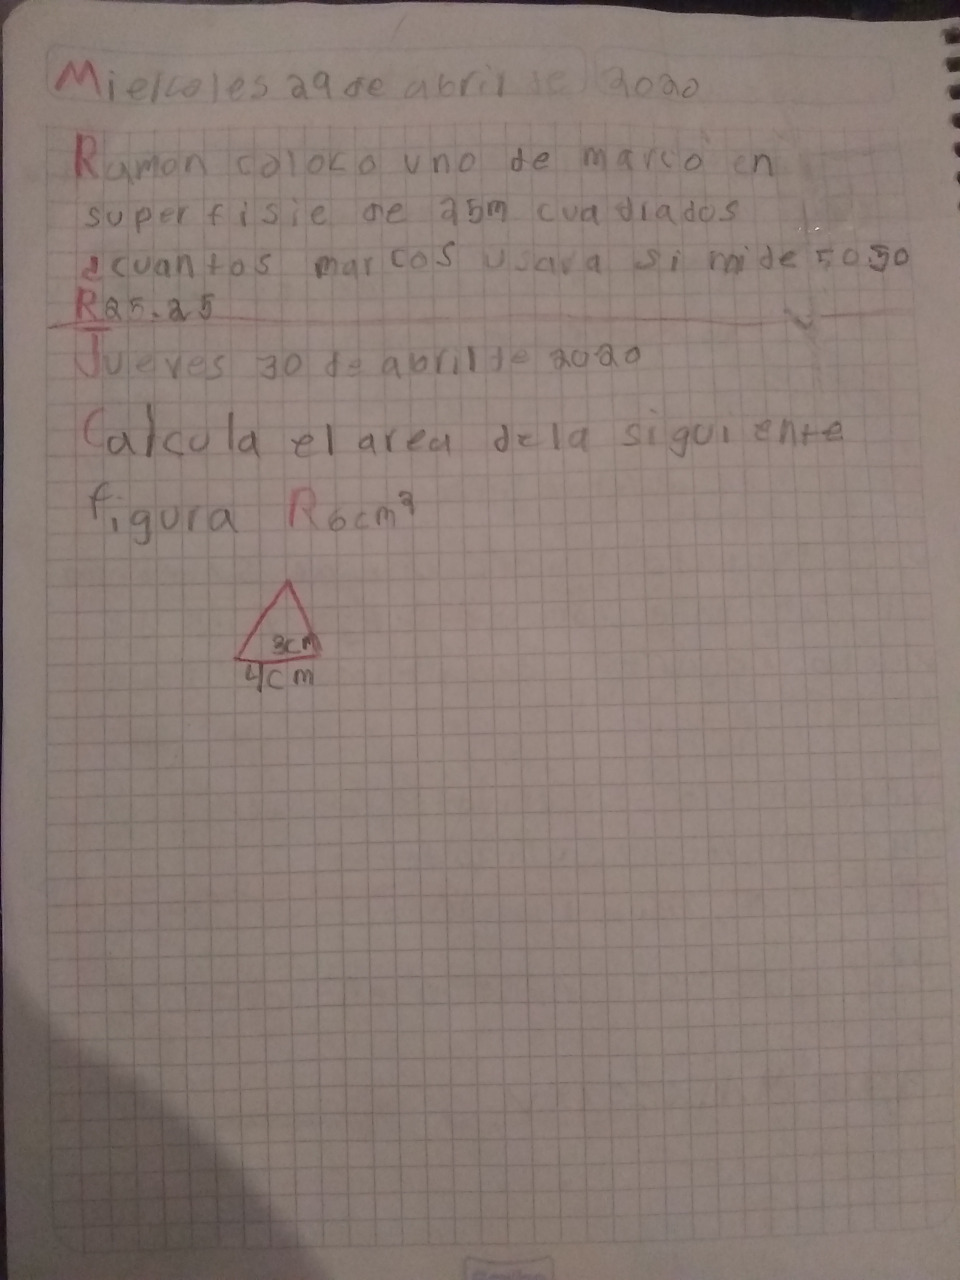 Mielcoles 29 de abril de 2020
Ramon coloco uno de marco en
superfisie de 25m cuadrados
¿cuantos marcos usara si mide 50 50
R25.25
Jueves 30 de abril de 2020
Calcula el area de la siguiente
figura R6cm²
3cm
4cm